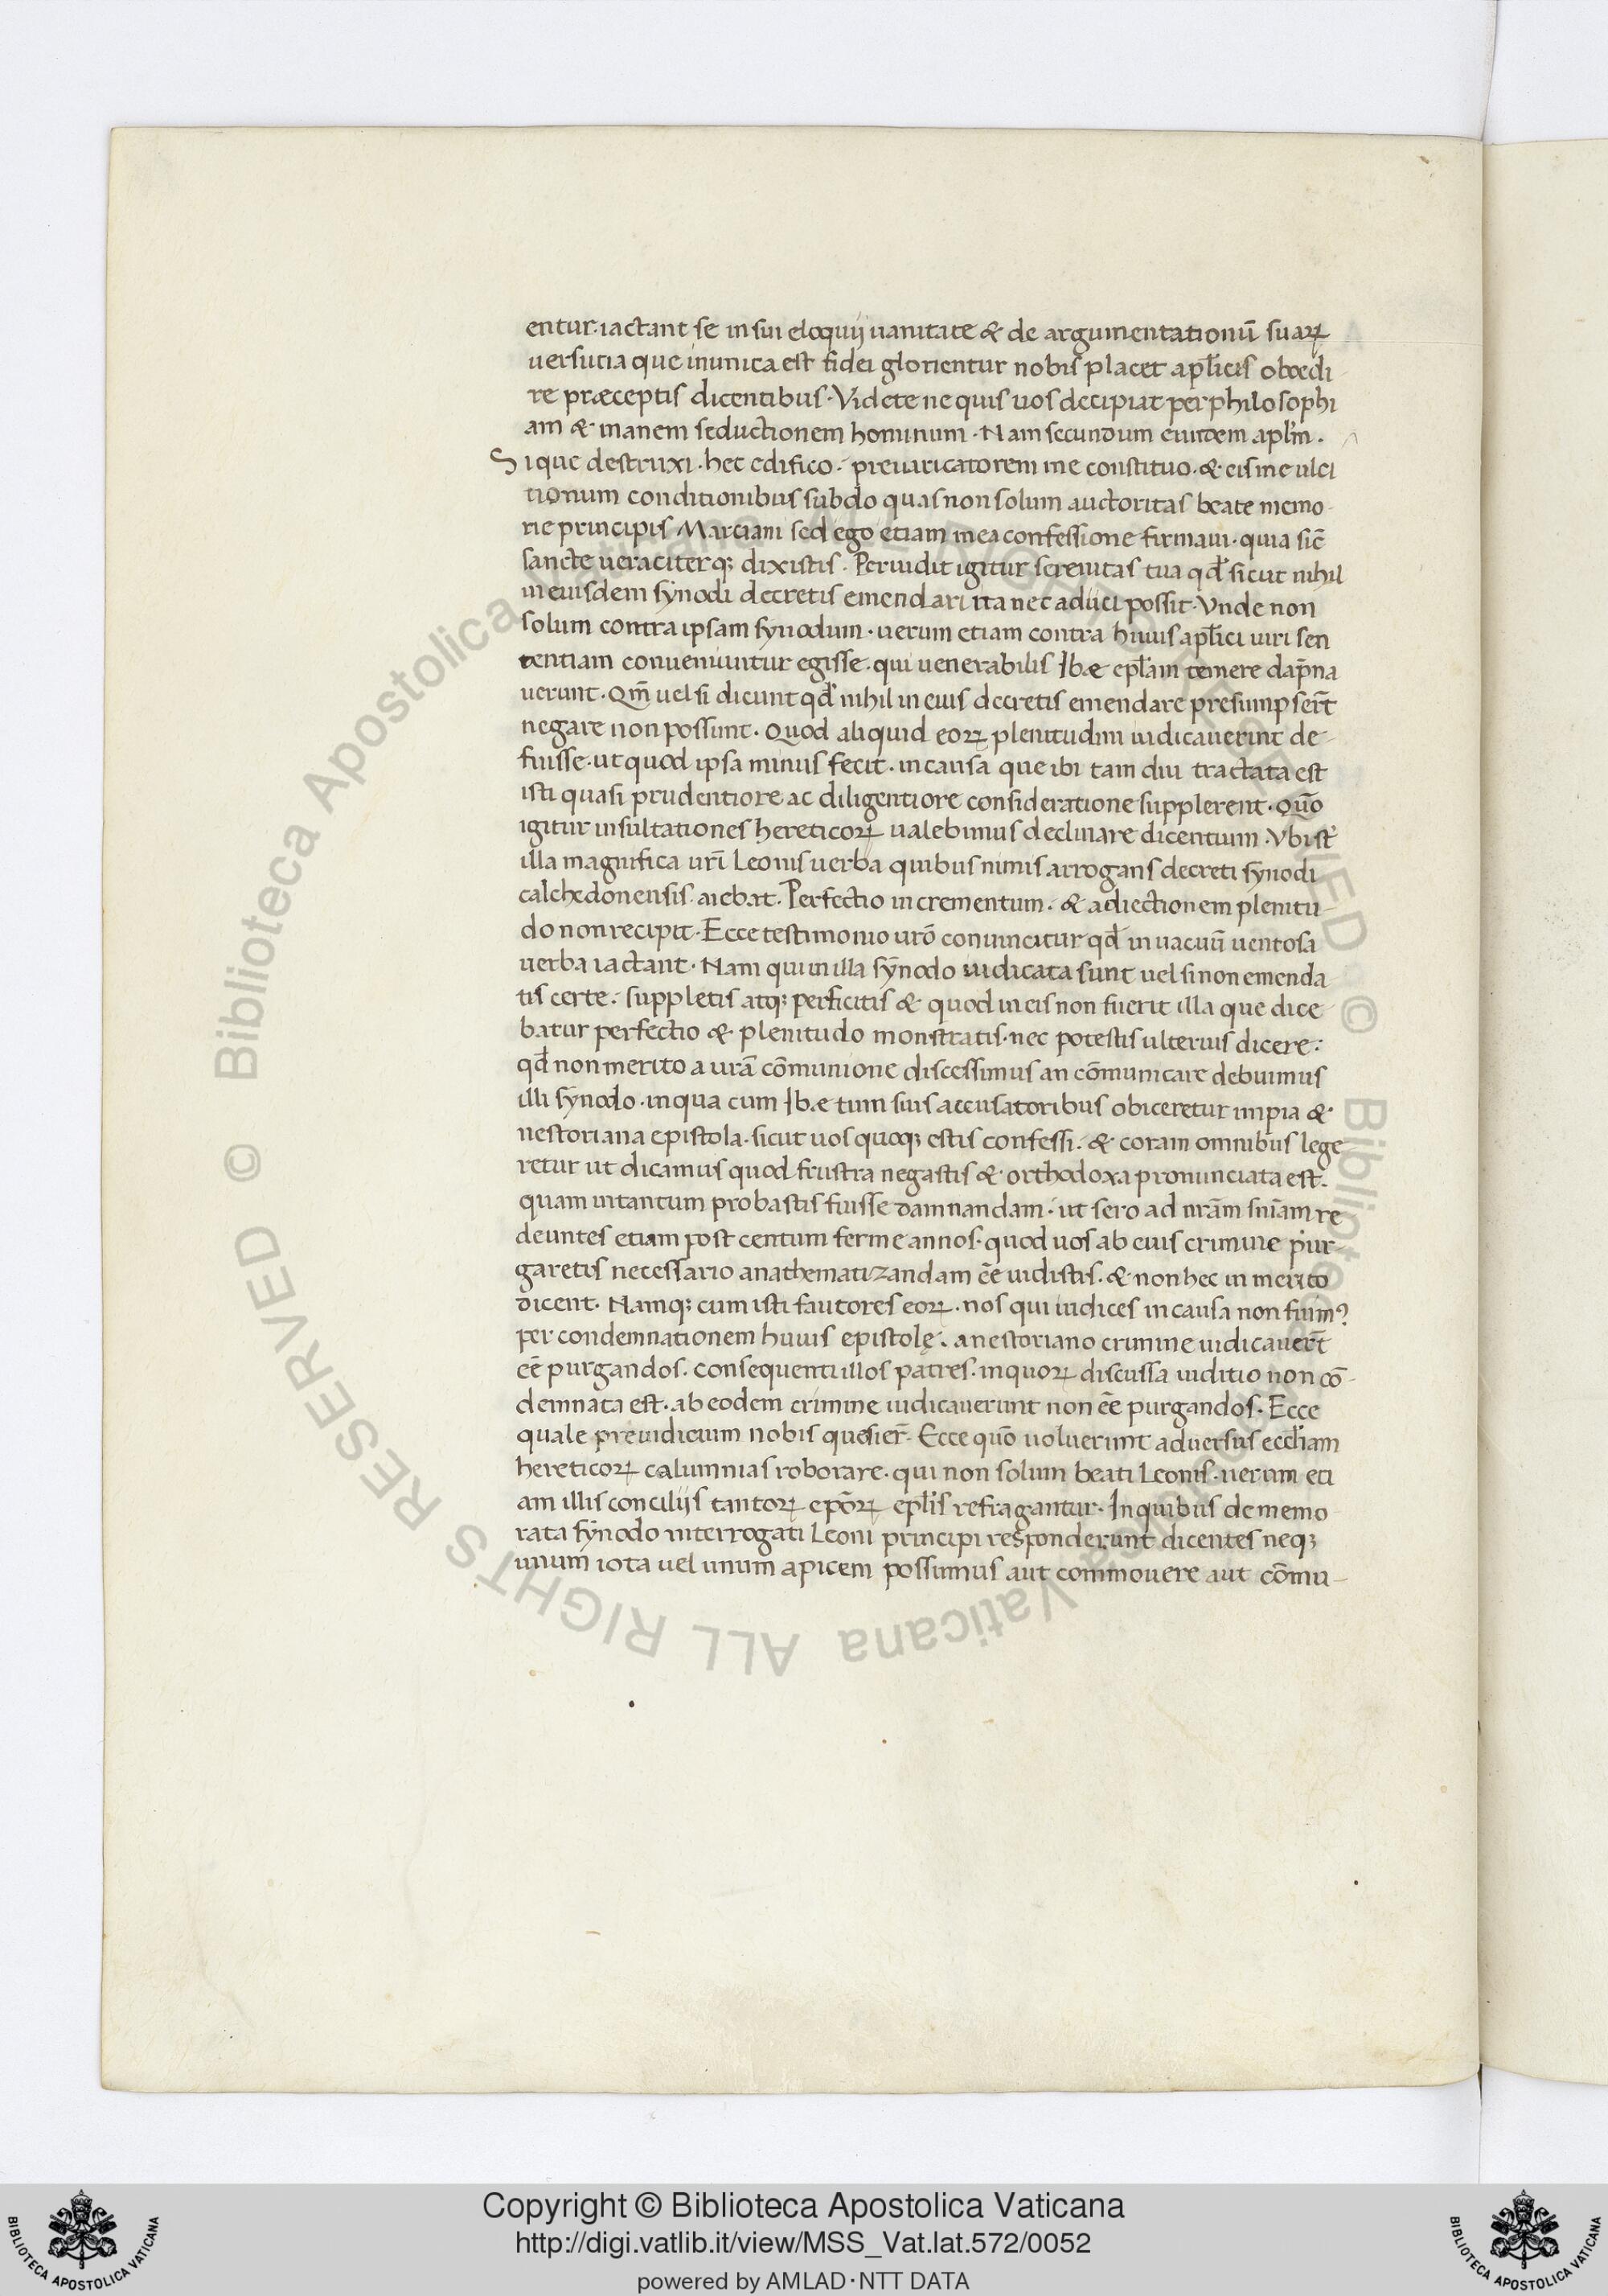 entur·iactant se in sui eloquij uanitate & de argumentationū suaꝝ
uersutia que inimica est fidei glorientur nobis placet ap̄licis oboedi-
re præceptis dicentibus·Videte ne quis uos decipiat per philosophi
am & inanem seductionem hominum·Nam secundum eundem apl̄m·
Si que destruxi·hec edifico·preuaricatorem me constituo·& eis me ulci
tionum conditionibus subdo quas non solum auctoritas beate memo-
rie principis Marciani sed ego etiam mea confessione firmaui·quia sic̄
sancte ueraciterq; dixistis·Peruidit igitur serenitas tua qd̄ sicut nihil
in eiusdem synodi decretis emendari ita nec aduci possit·Vnde non
solum contra ipsam synodum·uerum etiam contra huius ap̄lici uiri sen
tentiam conueniuntur egisse·qui uenerabilis Ibæ ep̄lam temere dap̄na
uerunt·Qm̄ uel si dicunt qd̄ nihil in eius decretis emendare presumpser̄t
negare non possunt·Quod aliquid eoꝝ plenitudini iudicauerint de-
fuisse·ut quod ipsa minus fecit·in causa que ibi tam diu tractata est
isti quasi prudentiore ac diligentiore consideratione supplerent·Quō
igitur insultationes hereticoꝝ ualebimus declinare dicentium·Vbi st̄
illa magnifica ur̄i Leonis uerba quibus nimis arrogans decreti synodi
calchedonensis aiebat·Perfectio incrementum·& adiectionem plenitu-
do non recipit·Ecce testimonio ur̄o conuincitur qd̄ in uacuū uentosa
uerba iactant·Nam qui in illa synodo iudicata sunt uel si non emenda
tis certe·suppletis atq; perficitis & quod in eis non fuerit illa que dice-
batur perfectio & plenitudo monstratis·nec potestis ulterius dicere·
qd̄ non merito a ur̄a cōmunione discessimus an cōmunicare debuimus
illi synodo·in qua cum Ibæ tum suis accusatoribus obiceretur impia &
nestoriana epistola·sicut uos quoq; estis confessi·& coram omnibus lege
retur ut dicamus quod frustra negastis & orthodoxa pronunciata est·
quam in tantum probastis fuisse damnandam·ut sero ad nr̄am sn̄iam re
deuntes etiam post centum ferme annos·quod uos ab eius crimine pur-
garetis necessario anathematizandam eē uidistis·& non hec in merito
dicent·Namq; cum isti fautores eoꝝ·nos qui iudices in causa non fuim⁹
per condemnationem huius epistolę·a nestoriano crimine iudicauer̄t
eē purgandos·consequenti illos patres·in quoꝝ discussa iuditio non cō-
demnata est·ab eodem crimine iudicauerunt non eē purgandos·Ecce
quale preiudicium nobis quesier̄·Ecce quō uoluerunt aduersus eccl̄iam
hereticoꝝ calumnias roborare·qui non solum beati Leonis·uerum eti
am illis concilijs tantoꝝ ep̄oꝝ ep̄lis refragantur·In quibus de memo-
rata synodo interrogati Leoni principi responderunt dicentes neq;
unum iota uel unum apicem possumus aut commouere aut cōmu-
© Biblioteca Apostolica Vaticana ALL RIGHTS RESERVED
© Biblioteca Apostolica Vaticana ALL RIGHTS RESERVED
Copyright © Biblioteca Apostolica Vaticana
http://digi.vatlib.it/view/MSS_Vat.lat.572/0052
powered by AMLAD·NTT DATA
BIBLIOTECA APOSTOLICA VATICANA
BIBLIOTECA APOSTOLICA VATICANA